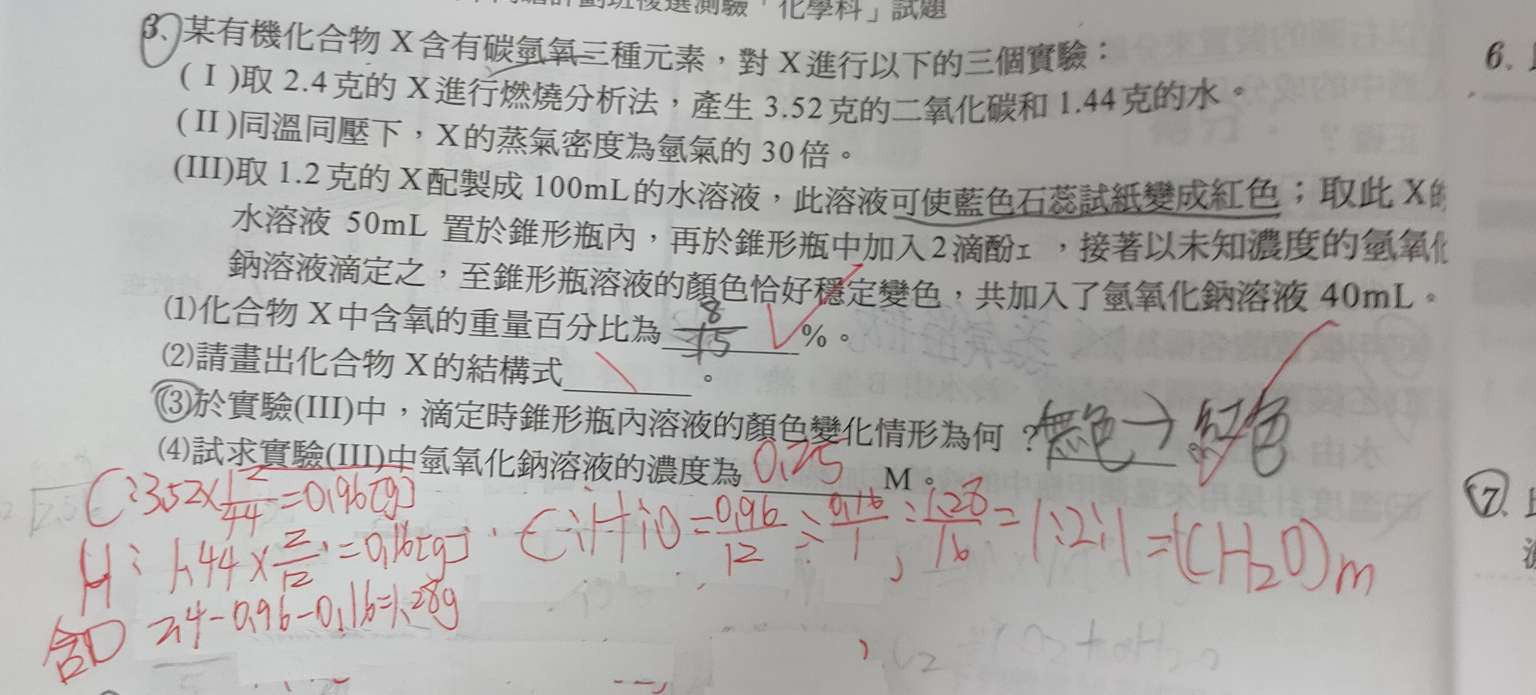 「化學科」試題
3、某有機化合物 X 含有碳氫氧三種元素，對 X 進行以下的三個實驗：
( I )取 2.4 克的 X 進行燃燒分析法，產生 3.52 克的二氧化碳和 1.44 克的水。
( II )同溫同壓下，X 的蒸氣密度為氫氣的 30 倍。
(III)取 1.2 克的 X 配製成 100mL 的水溶液，此溶液可使藍色石蕊試紙變成紅色；取此 X 的
水溶液 50mL 置於錐形瓶內，再於錐形瓶中加入 2 滴酚ɪ ，接著以未知濃度的氫氧化
鈉溶液滴定之，至錐形瓶溶液的顏色恰好穩定變色，共加入了氫氧化鈉溶液 40mL。
(1)化合物 X 中含氧的重量百分比為 8/15 %。
(2)請畫出化合物 X 的結構式 。
(3)於實驗(III)中，滴定時錐形瓶內溶液的顏色變化情形為何 ? 無色→紅色
(4)試求實驗(III)中氫氧化鈉溶液的濃度為 0.25 M。
C:3.52×12/44=0.96(g)
H: 1.44×2/12=0.16(g)
C:H:O=0.96/12:0.16/1:1.28/16=1:2:1=(CH₂O)m
含O 2.4-0.96-0.16=1.28g
6.
7.